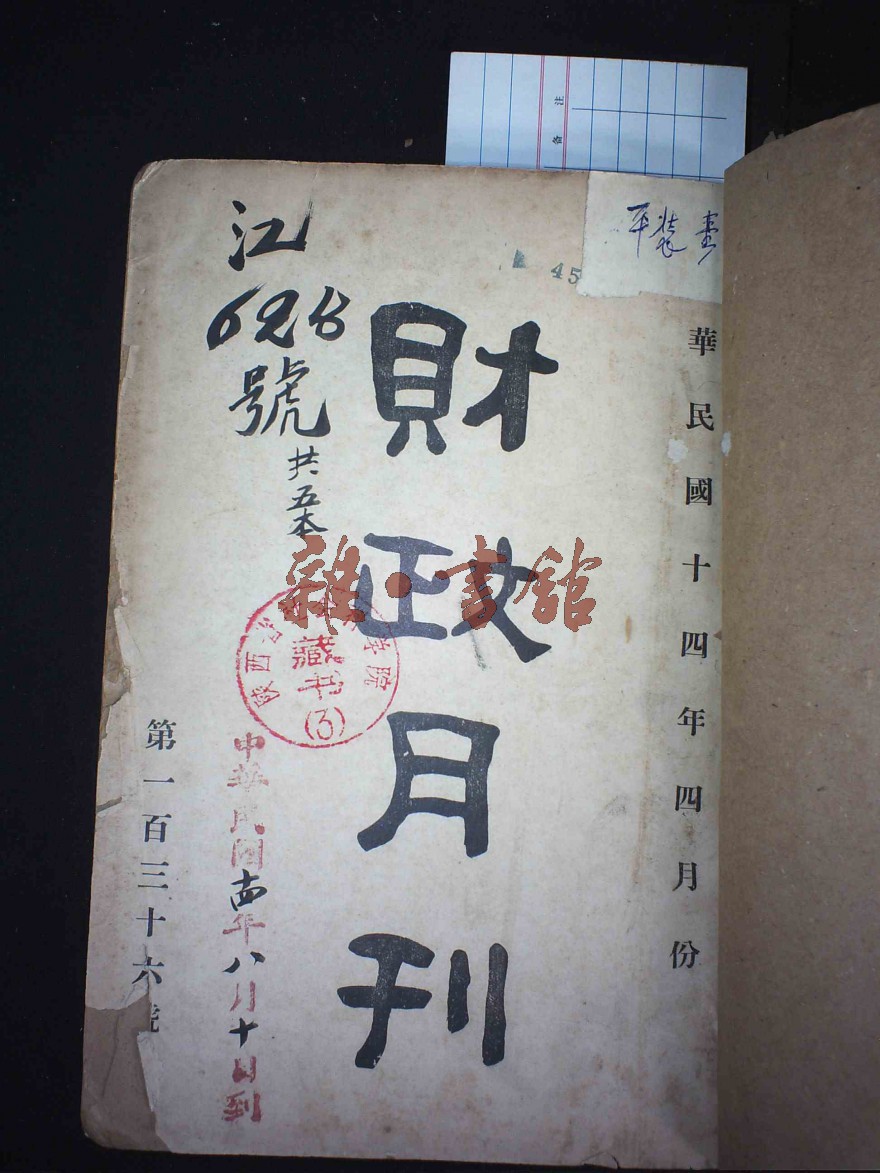 備 注
平裝
45
華民國十四年四月份
財政月刊
江
628
號
共五本
雜·書館
藏書
(3)
陕西
院
中華民國十四年八月十日到
第一百三十六號